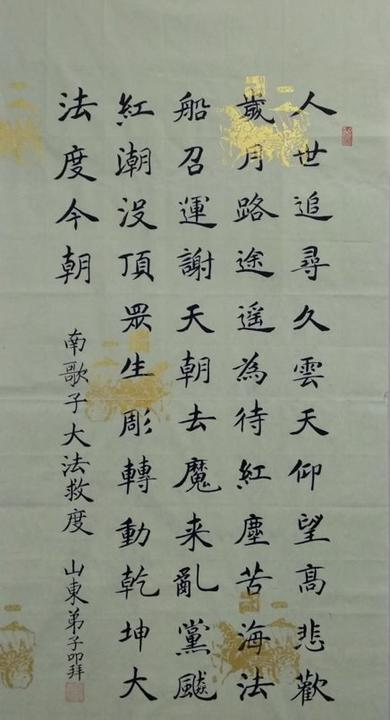 人世追尋久雲天仰望高悲歡
歲月路途遥為待紅塵苦海法
船召運謝天朝去魔来亂黨飈
紅潮没頂眾生彫轉動乾坤大
法度今朝
南歌子大法救度
山東弟子叩拜